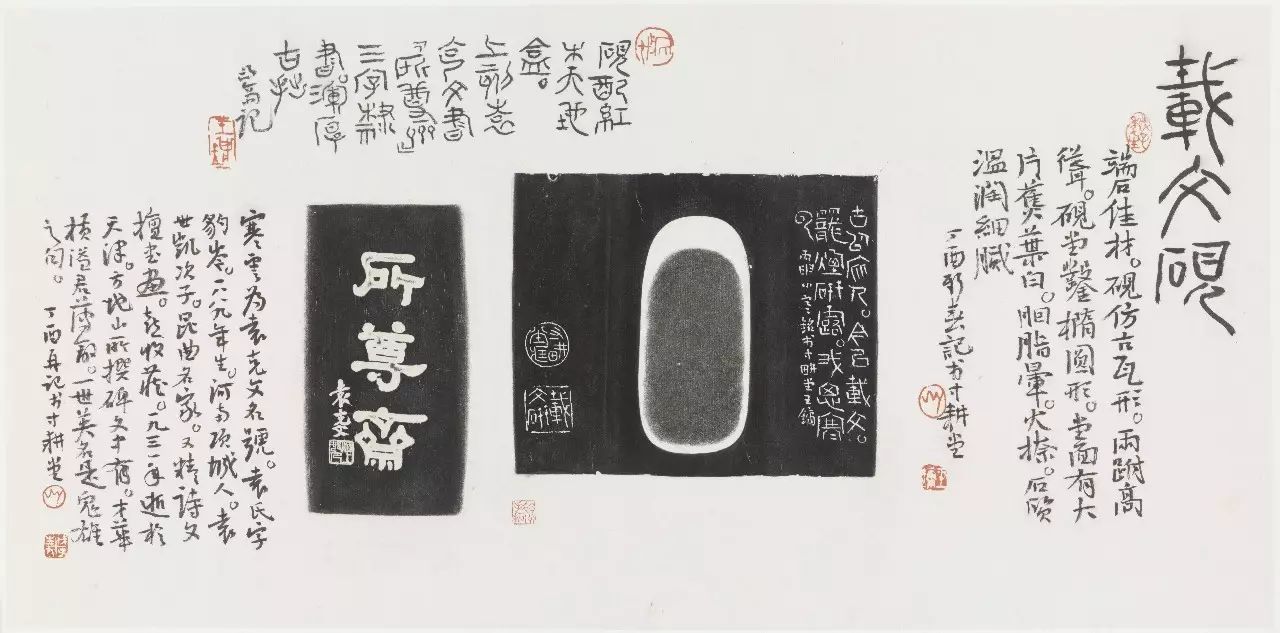 載文硯
端石佳材。硯仿古瓦形。兩跗高
聳。硯堂鑿橢圓形。堂面有大
片蕉葉白。胭脂暈。火捺。石質
溫潤細膩
丁酉新春記於寸耕堂
硯配紅
木天地
盒。
上刻袁
克文書
所尊齋
三字隸
書。渾厚
古拙
又寫記
今名載文。
我思寒
載文硯
所尊齋
袁克文
寒雲為袁克文名號。袁氏字
豹岑。一八九〇年生。河南項城人。袁
世凱次子。昆曲名家。又精詩文
擅書畫。喜收藏。一九三一年逝於
天津。方地山所撰碑文中有。才華
橫溢君薄命。一世英名是鬼雄
之句。
丁酉丹記於寸耕堂